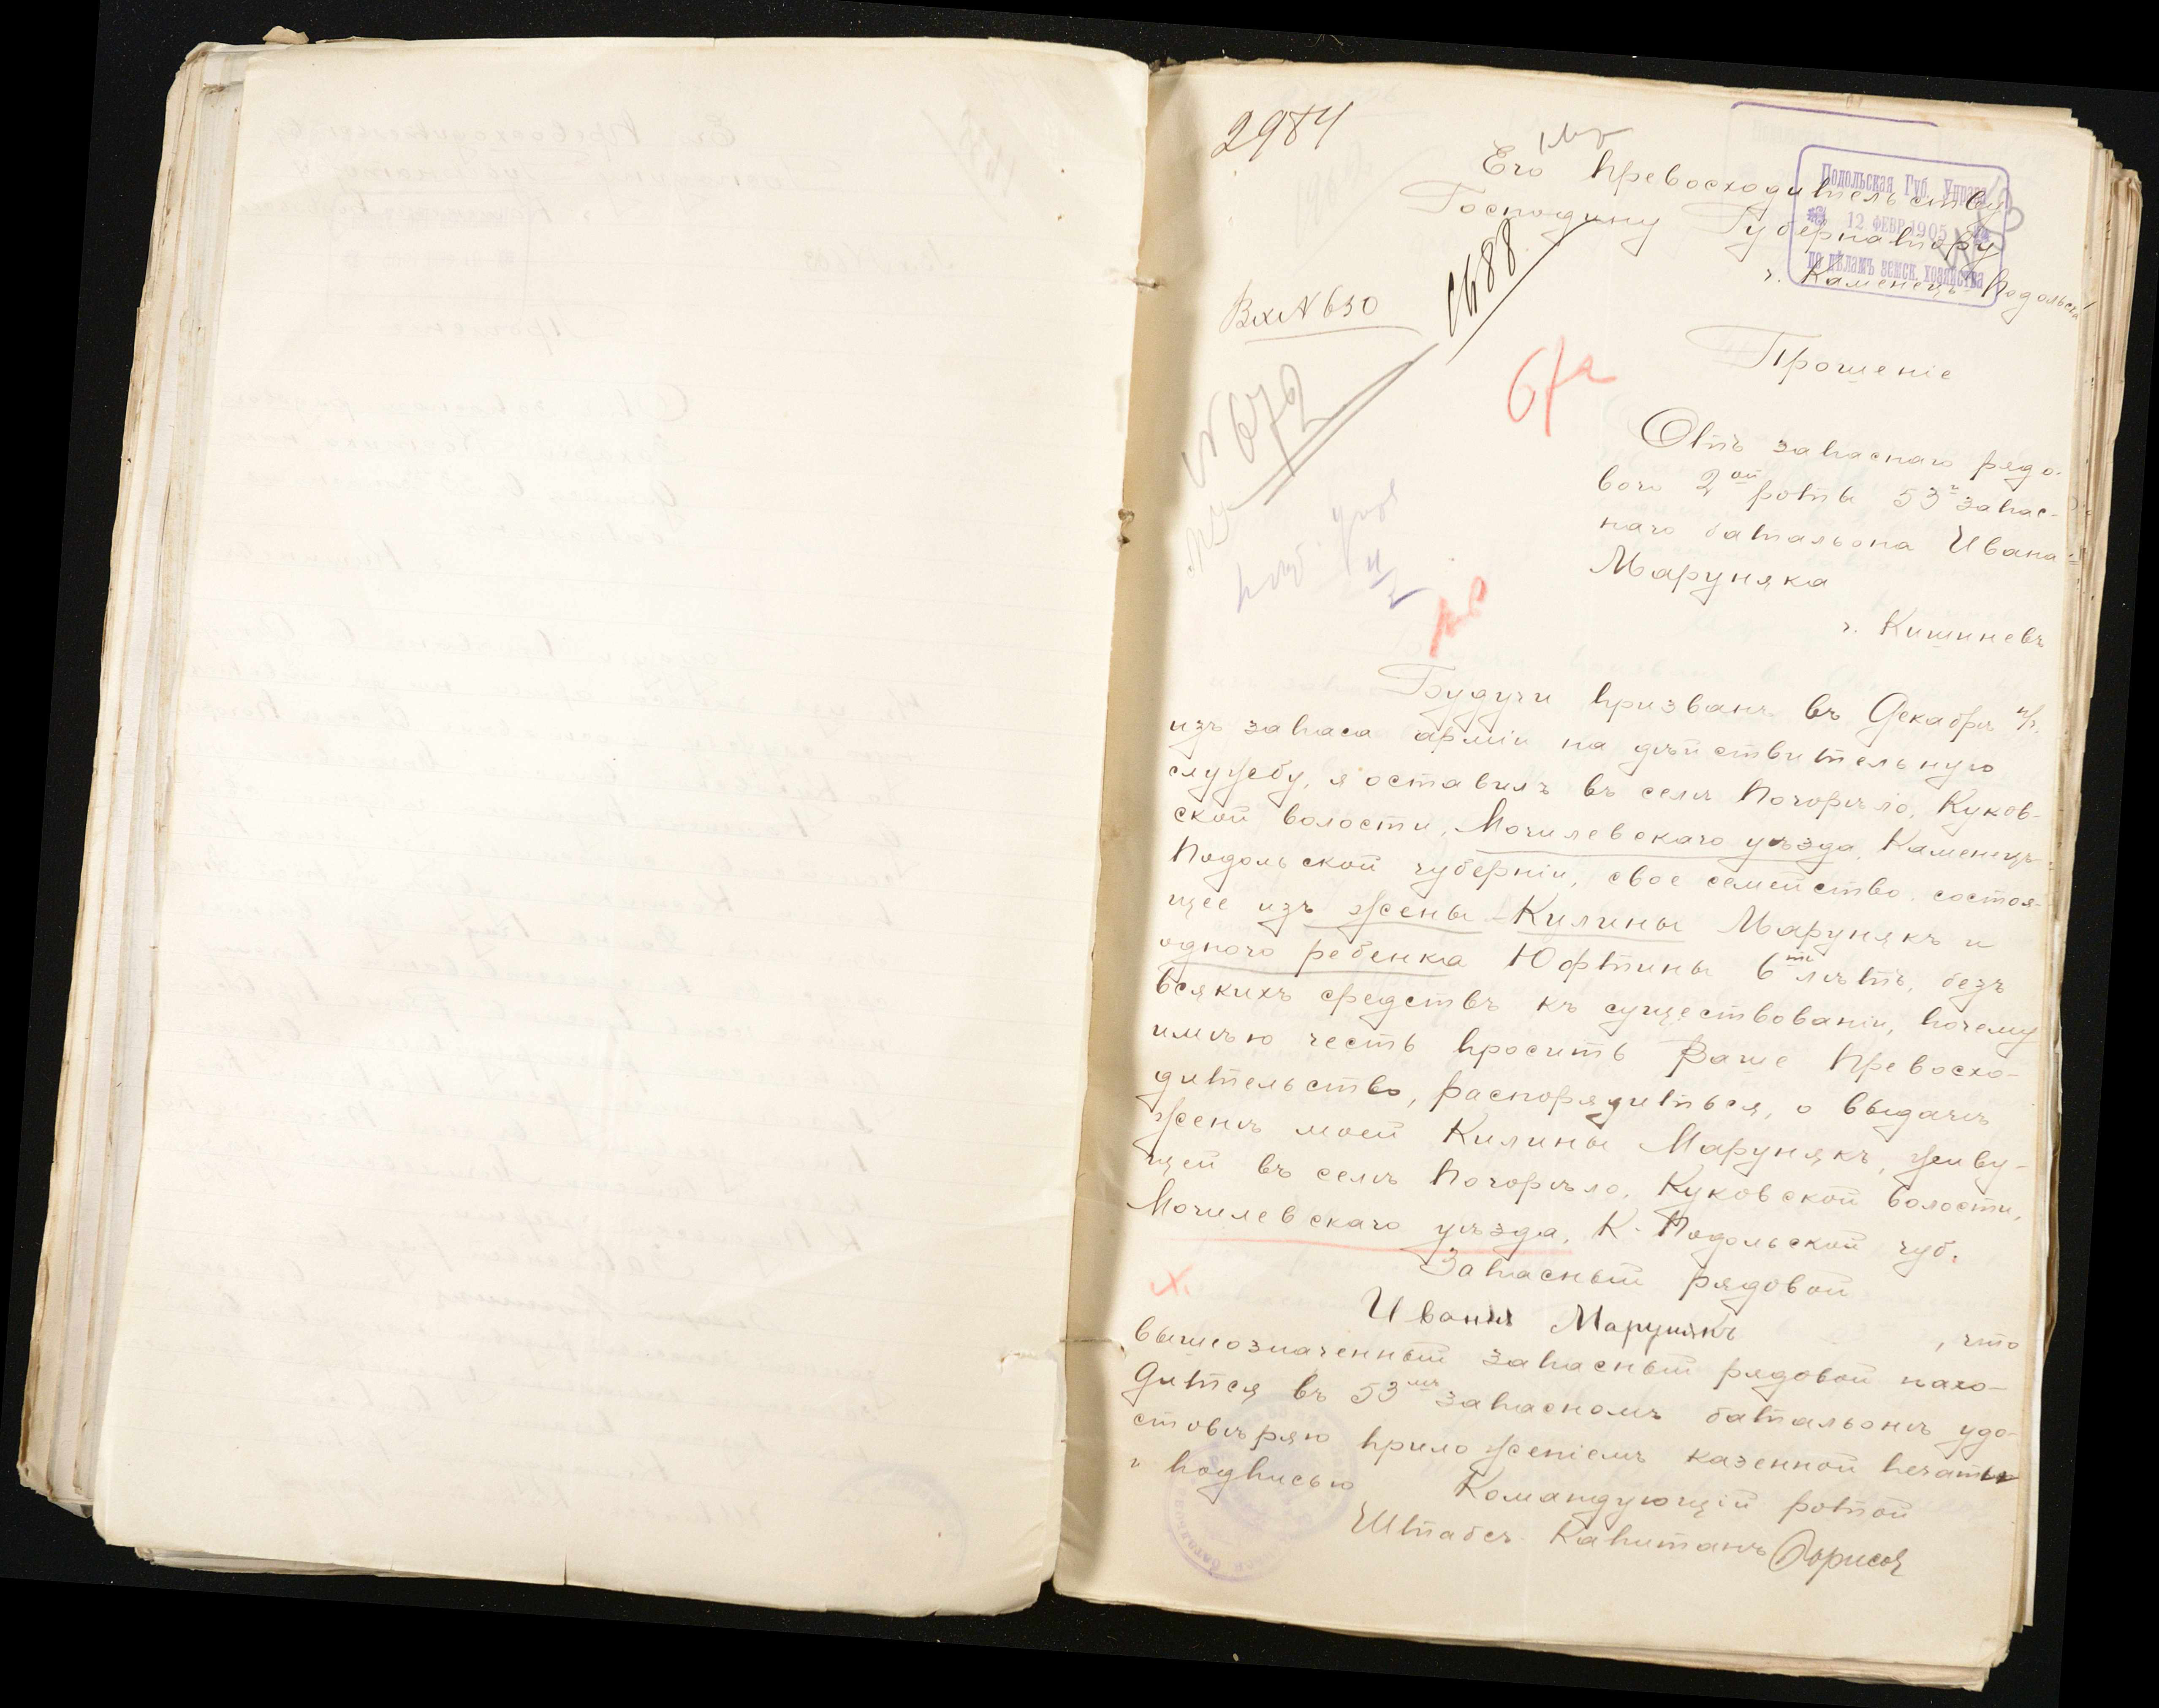 2984
Его Превосходительству
Господину Губернатору
г. Каменецъ-Подольскъ
Подольская Губ. Управа
12 ФЕВР 1905
по дѣламъ земск. хозяйства
Вх N 630
N 672
Прошеніе
Отъ запаснаго рядо-
вого 2ой роты 53г запас-
наго батальона Ивана
Маруняка
г. Кишиневъ
Будучи призванъ въ Декабрѣ
изъ запаса арміи на дѣйствительную
службу, я оставилъ въ селѣ Погорѣло, Куков-
ской волости, Могилевскаго уѣзда, Каменецъ-
Подольской губерніи, свое семейство, состоя-
щее изъ жены - Килины Марунякъ и
одного ребенка Юфтины 6ти лѣтъ, безъ
всякихъ средствъ къ существованіи, почему
имѣю честь просить Ваше Превосхо-
дительство, распорядиться, о выдачѣ
женѣ моей Килины Марунякъ, живу-
щей въ селѣ Погорѣло, Куковской волости,
Могилевскаго уѣзда, К-Подольской губ.
Запасный рядовой
Иванъ Марунякъ , что
вышеозначенный запасный рядовой нахо-
дится въ 53мъ запасномъ батальонѣ удо-
стовѣряю приложеніемъ казенной печати
и подписью Командующій ротой
Штабсъ-Капитанъ Борисов